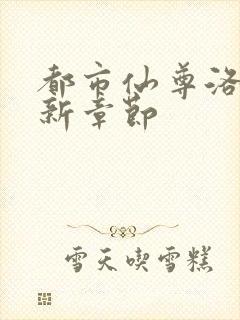 都市仙尊洛
新章節
雪天喫雪糕